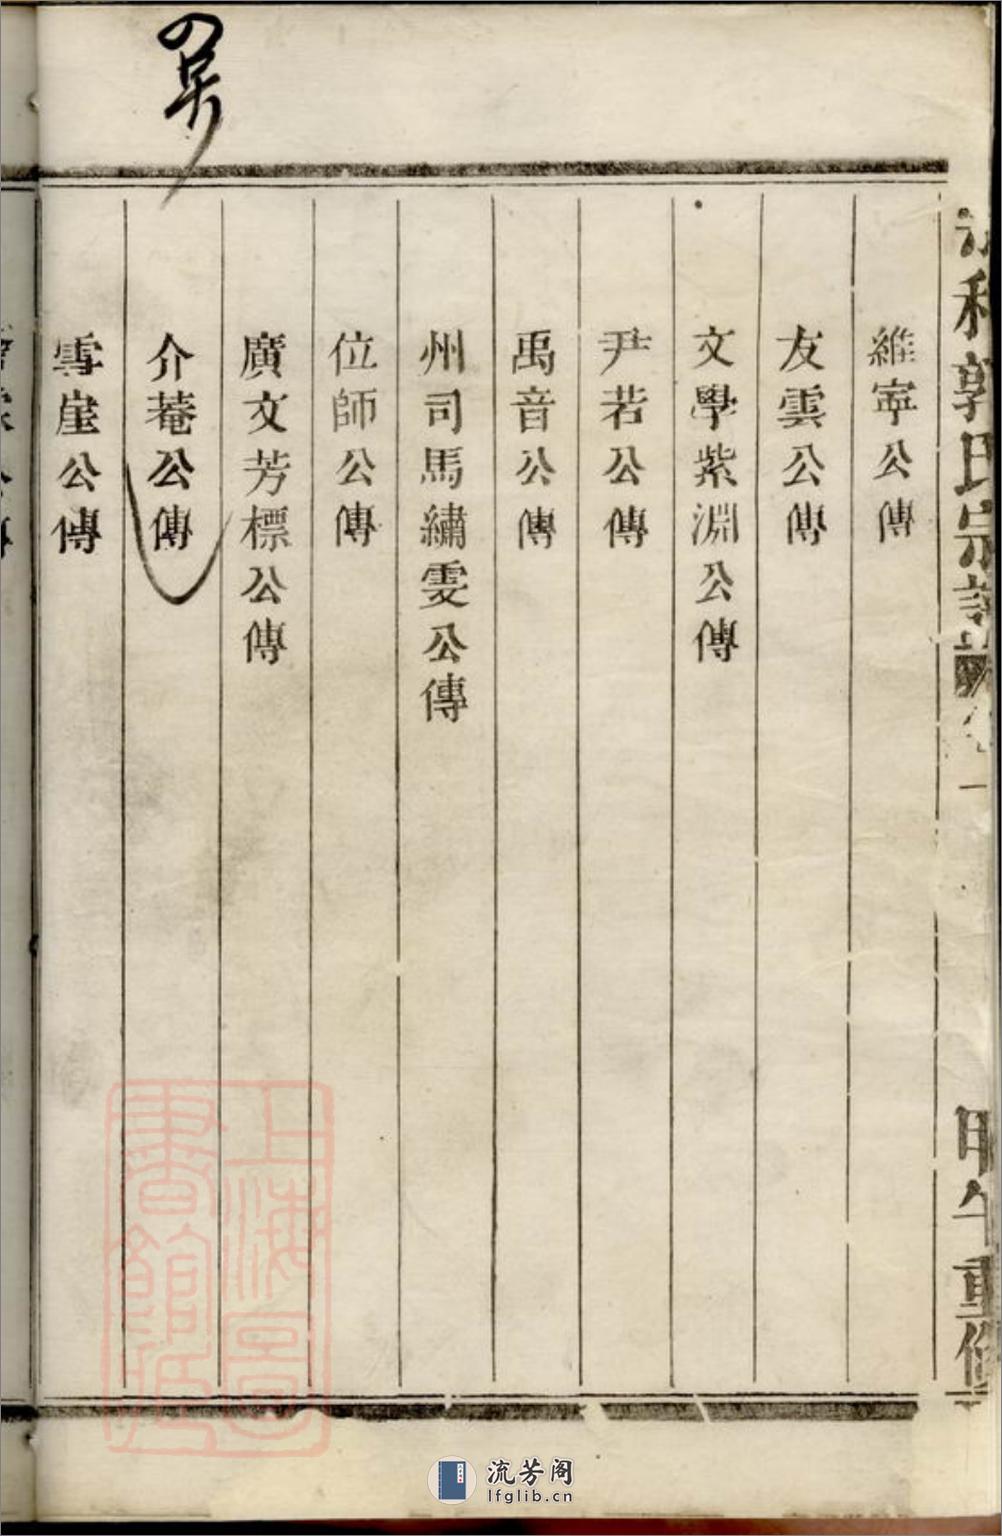 利郭氏宗譜
一
甲午重修
維寧公傳
友雲公傳
文學紫淵公傳
尹若公傳
禹音公傳
州司馬繡雯公傳
位師公傳
廣文芳標公傳
介菴公傳
雪崖公傳
上海圖
書館藏
流芳阁
lfglib.cn